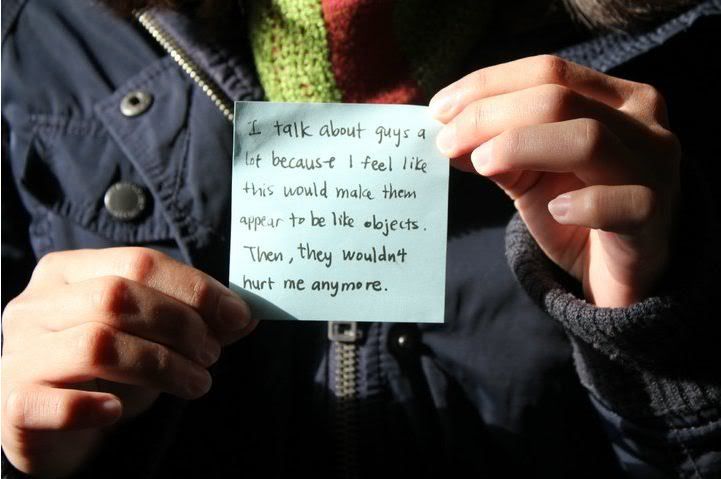 I talk about guys a
lot because I feel like
this would make them
appear to be like objects.
Then, they wouldn't
hurt me anymore.